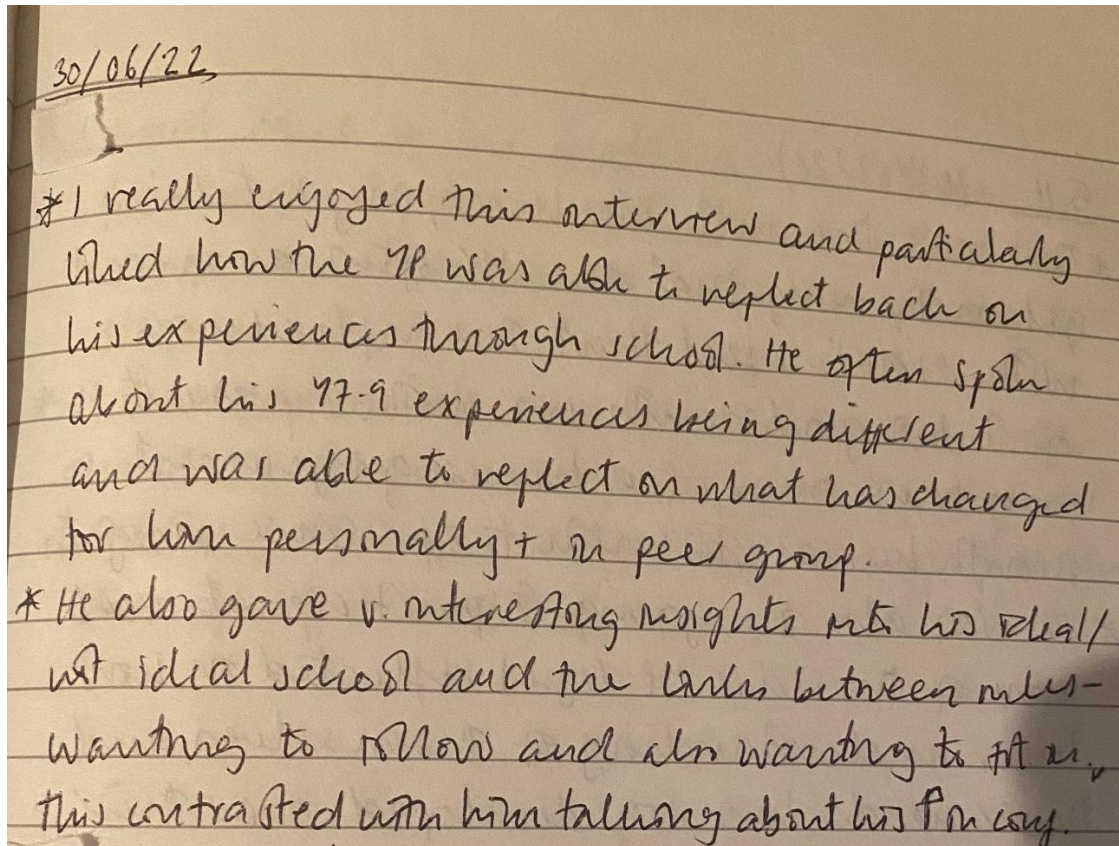 30/06/22
* I really enjoyed this interview and particularly
liked how the YP was able to reflect back on
his experiences through school. He often spoke
about his Y7-9 experiences being different
and was able to reflect on what has changed
for him personally + in peer group.
* He also gave v. interesting insights into his ideal/
not ideal school and the links between rules-
wanting to follow and also wanting to fit in,
this contrasted with him talking about his ↑ in